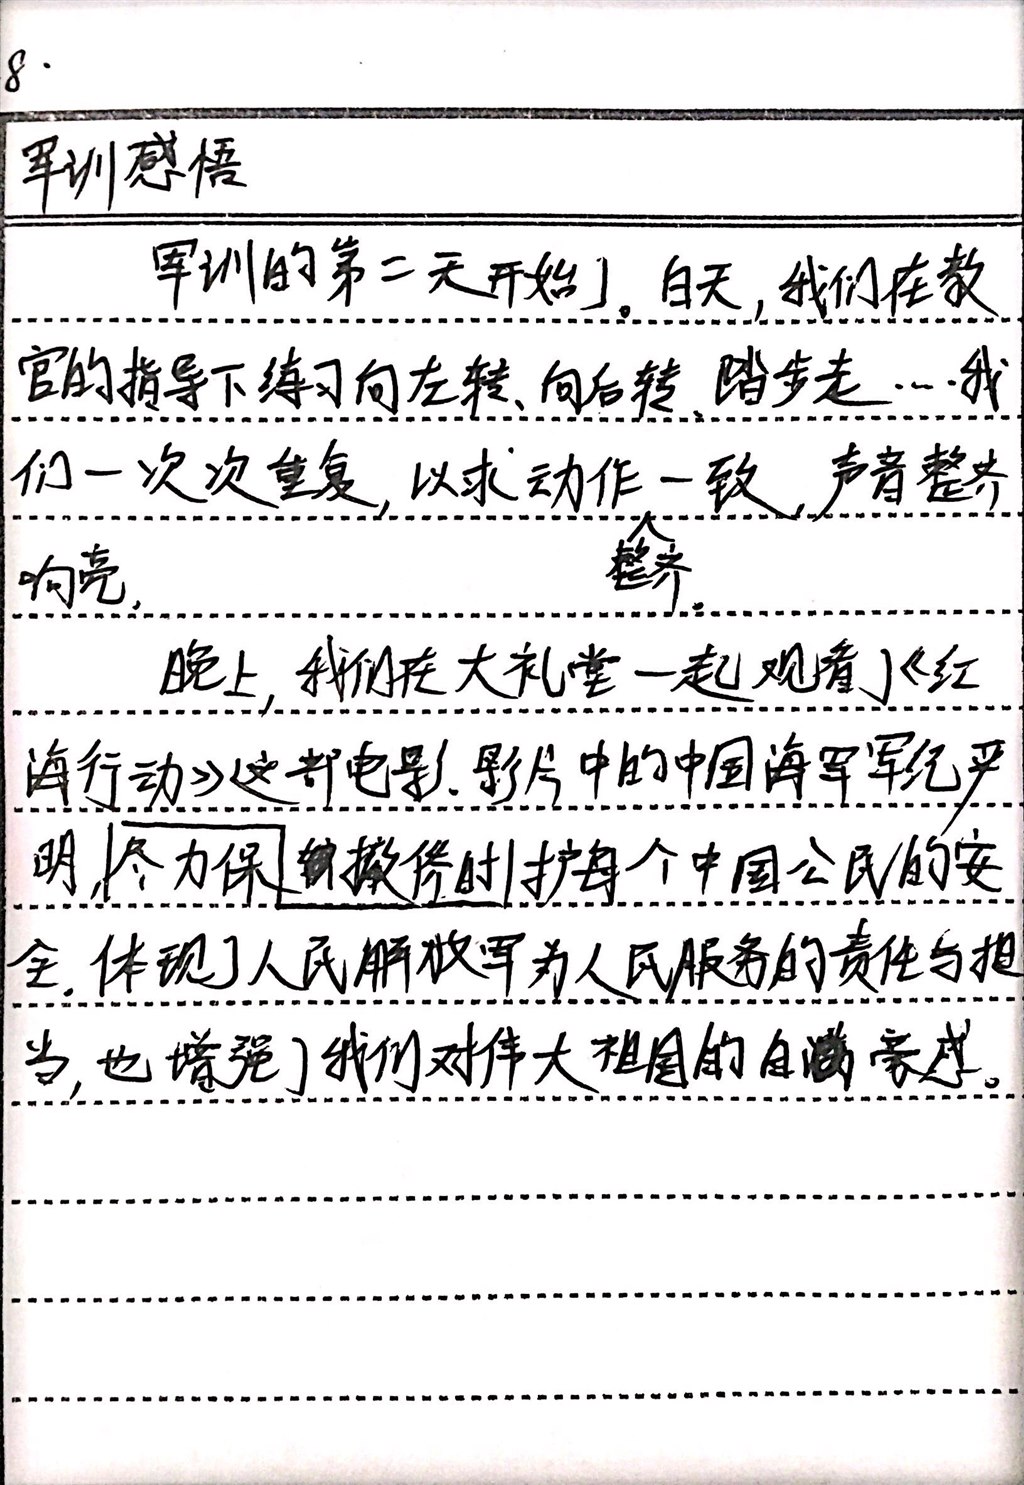 8.
军训感悟
军训的第二天开始了。白天，我们在教
官的指导下练习向左转、向后转、踏步走……我
们一次次重复，以求动作一致，声音整齐
响亮，
整齐。
晚上，我们在大礼堂一起观看了《红
海行动》这部电影.影片中的中国海军军纪严
明，尽力保撤侨时护每个中国公民的安
全.体现了人民解放军为人民服务的责任与担
当，也增强了我们对伟大祖国的自豪感。